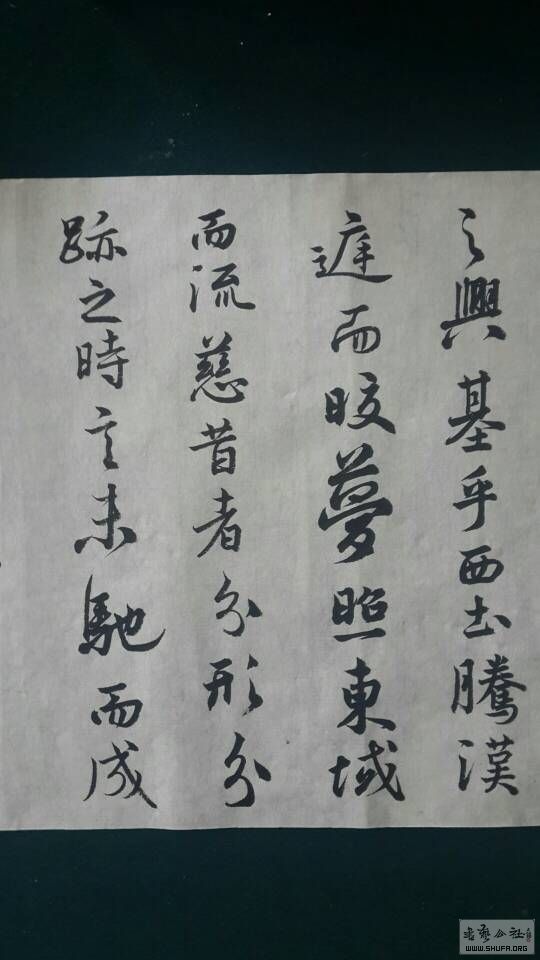 之興基乎西土騰漢
庭而晈夢照東域
而流慈昔者分形分
跡之時言未馳而成
书艺公社
WWW.SHUFA.ORG